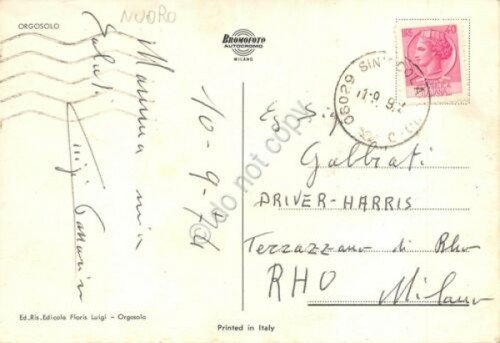 ORGOSOLO
NUORO
BROMOFOTO
AUTOCROMO
MILANO
40
08029 SINISCOLA
11-9
Mamma mia
Saluti
Luigi
10-9-74
Gabbiati
DRIVER-HARRIS
Terrazzano di Rho
RHO
Milano
do not copy
Ed.Ris.Edicola Floris Luigi - Orgosolo
Printed in Italy